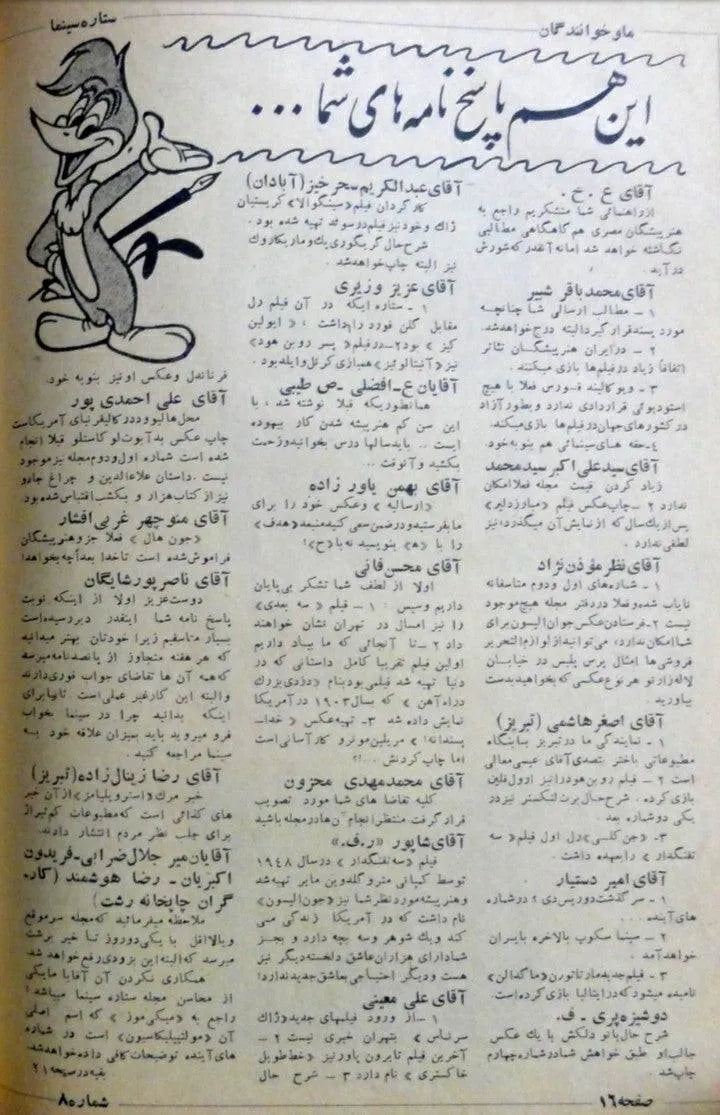 ما و خوانندگان
ستاره سینما
این هم پاسخ نامه های شما ...
آقای ع . خ .
از راهنمائی شما متشکریم راجع به
هنرپیشگان مصری هم گاهگاهی مطالبی
نگاشته خواهد شد اما نه آنقدر که شورش
در آید .
آقای محمد باقر شبیر
۱ ــ مطالب ارسالی شما چنانچه
مورد پسند قرار گیرد البته درج خواهد شد.
۲ ــ در ایران هنرپیشگان تئاتر
اتفاقاً زیاد در فیلم‌ها بازی میکنند .
۳ ــ ویو کالیند فورس فعلا با هیچ
استودیوئی قراردادی ندارد و بطور آزاد
در کشورهای جهان در فیلم‌ها بازی میکند.
۴ــ حقه های سینمائی هم بنوبه خود.
آقای سید علی اکبر سید محمد
زیاد کردن قیمت مجله فعلا امکان
ندارد ۲ ــ چاپ عکس فیلم «مبارز دلیر»
پس از یک سال که از نمایش آن میگذرد؛ نیز
لطفی ندارد .
آقای نظر مؤذن نژاد
۱ ــ شماره‌های اول و دوم متاسفانه
نایاب شده و فعلا در دفتر مجله هیچ موجود
نیست ۲ــ فرستادن عکس جون الیسون برای
شما امکان ندارد، می‌توانید از لوازم التحریر
فروشی‌ها امثال پرس پلیس در خیابان
لاله‌زار نو هر نوع عکسی که بخواهید بدست
بیاورید .
آقای اصغر هاشمی (تبریز)
۱ ــ نمایندگی ما در تبریز با بنگاه
مطبوعاتی باختر بتصدی آقای عیسی معالی
است ۲ ــ فیلم روبن هود را نیز ارول فلین
بازی کرده . شرح حال برت لنکستر نیز در
یکی دو شماره بعد .
۳ــ «جن کلسی» رل اول فیلم «سه
تفنگدار» را بعهده داشت .
آقای امیر دستیار
۱ ــ سرگذشت دوریس دی ؟ در شماره
های آینده ...
۲ ــ سینما سکوپ بالاخره بایران
خواهد آمد .
۳ ــ فیلم جدید مارتا تورن «ماگدالن»
نامیده میشود که در ایتالیا بازی کرده است.
دوشیزه پری ــ ف.
شرح حال بانو دلکش با یک عکس
جالب او طبق خواهش شما در شماره چهارم
چاپ شد .
آقای عبدالکریم سحر خیز (آبادان)
کارگردان فیلم «سینگوالا» کریستیان
ژاک و خود نیز فیلم در سوئد تهیه شده بود .
شرح حال گریگوری پک و ماریکا روک
نیز البته چاپ خواهد شد .
آقای عزیز وزیری
۱ ــ ستاره ایکه در آن فیلم رل
مقابل گلن فورد را داشت ، «ایولین
کیز» بود ۲ــ در فیلم «پسر روبن هود»
نیز «آنیتا لوئیز» همبازی کرنل وایلد بود .
آقایان ع ــ افضلی ــ ص طیبی
همانطوریکه قبلا نوشته شد ، با
این سن کم هنرپیشه شدن کار بیهوده
ایست .. باید سالها درس بخوانید و زحمت
بکشید و آنوقت ...
آقای بهمن یاور زاده
«ارسالیه» و عکس خود را برای
ما بفرستید و در ضمن سعی کنید منبعد «هدف»
را با «ه» بنویسید نه با «ح»!
آقای محسن فانی
اولا از لطف شما تشکر بی‌پایان
داریم و سپس : ۱ ــ فیلم «سه بعدی»
را نیز امسال در تهران نشان خواهند
داد ۲ ــ تا آنجائی که ما بیاد داریم
اولین فیلم تقریبا کامل داستانی که در
دنیا تهیه شد فیلمی بود بنام «دزدی بزرگ
در راه آهن» که بسال ۱۹۰۳ در آمریکا
نمایش داده شد ۳ ــ تهیه عکس «خدا
پسندانه»! مریلین مونرو کار آسانی است
اما چاپ کردنش ...!؟
آقای محمد مهدی محزون
کلیه تقاضا های شما مورد تصویب
قرار گرفت منتظر انجام آن‌ها در مجله باشید
آقای شاپور «ر.ف.»
فیلم «سه تفنگدار» در سال ۱۹۴۸
توسط کمپانی متروگلدوین مایر تهیه شد
و هنرپیشه مورد نظر شما نیز «جون الیسون»
نام داشت که در آمریکا زندگی می
کند و یک شوهر و سه بچه دارد و بجز
شما دارای هزاران عاشق دلخسته دیگر نیز
هست و دیگر احتیاجی بعاشق جدید ندارد!
آقای علی معینی
۱ ــ از ورود فیلمهای جدید «ژاک
سرناس» بتهران خبری نیست ۲ ــ
آخرین فیلم تایرون پاور نیز «خط طویل
خاکستری» نام دارد ۳ ــ شرح حال
فرناندل و عکس او نیز بنوبه خود.
آقای علی احمدی پور
محل هالیوود در کالیفرنیای آمریکاست
چاپ عکس بد آبوت لو کاستلو قبلا انجام
شده است شماره اول و دوم مجله نیز موجود
نیست . داستان علاءالدین و چراغ جادو
نیز از کتاب هزار و یکشب اقتباس شده بود.
آقای منوچهر غربی افشار
«جون هال» فعلا جزو هنرپیشگان
فراموش شده است تا خدا بعداً چه بخواهد!
آقای ناصر پور شایگان
دوست عزیز اولا از اینکه نوبت
پاسخ نامه شما اینقدر دیر رسیده است
بسیار متاسفیم زیرا خودتان بهتر میدانید
که هر هفته متجاوز از پانصد نامه میرسد
که همه آن ها تقاضای جواب فوری دارند
و البته این کار غیر عملی است ثانیا برای
اینکه بدانید چرا در سینما بخواب
فرو میروید باید بمیزان علاقه خود به
سینما مراجعه کنید .
آقای رضا زینال زاده (تبریز)
خبر مرگ «استر ویلیامز» از آن خبر
های کذائی است که مطبوعات کم تیراژ
برای جلب نظر مردم انتشار دادند.
آقایان میر جلال ضرابی ــ فریدون
اکبریان ــ رضا هوشمند (کار-
گران چاپخانه رشت)
ملاحظه میفرمائید که مجله سر موقع
و یا لااقل با یکی دو روز تا خیر برشت
میرسد که البته این بزودی رفع خواهد شد.
همکاری نکردن آن آقا با ما یکی
از محاسن مجله ستاره سینما میباشد!
راجع به «میکی موز» که اسم اصلی
آن «مولتیپلیکاسیون» است در شماره
های آینده توضیحات کافی داده خواهد شد.
بقیه در صفحه ۲۱
صفحه ۱۶
شماره ۸